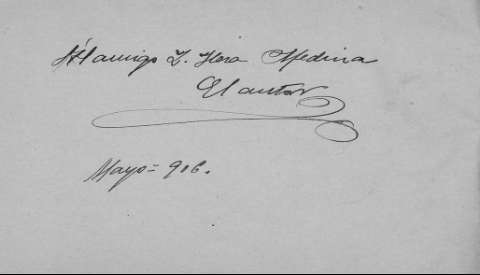 Al amigo Z. Flora Medina
El autor
Mayo = 906.